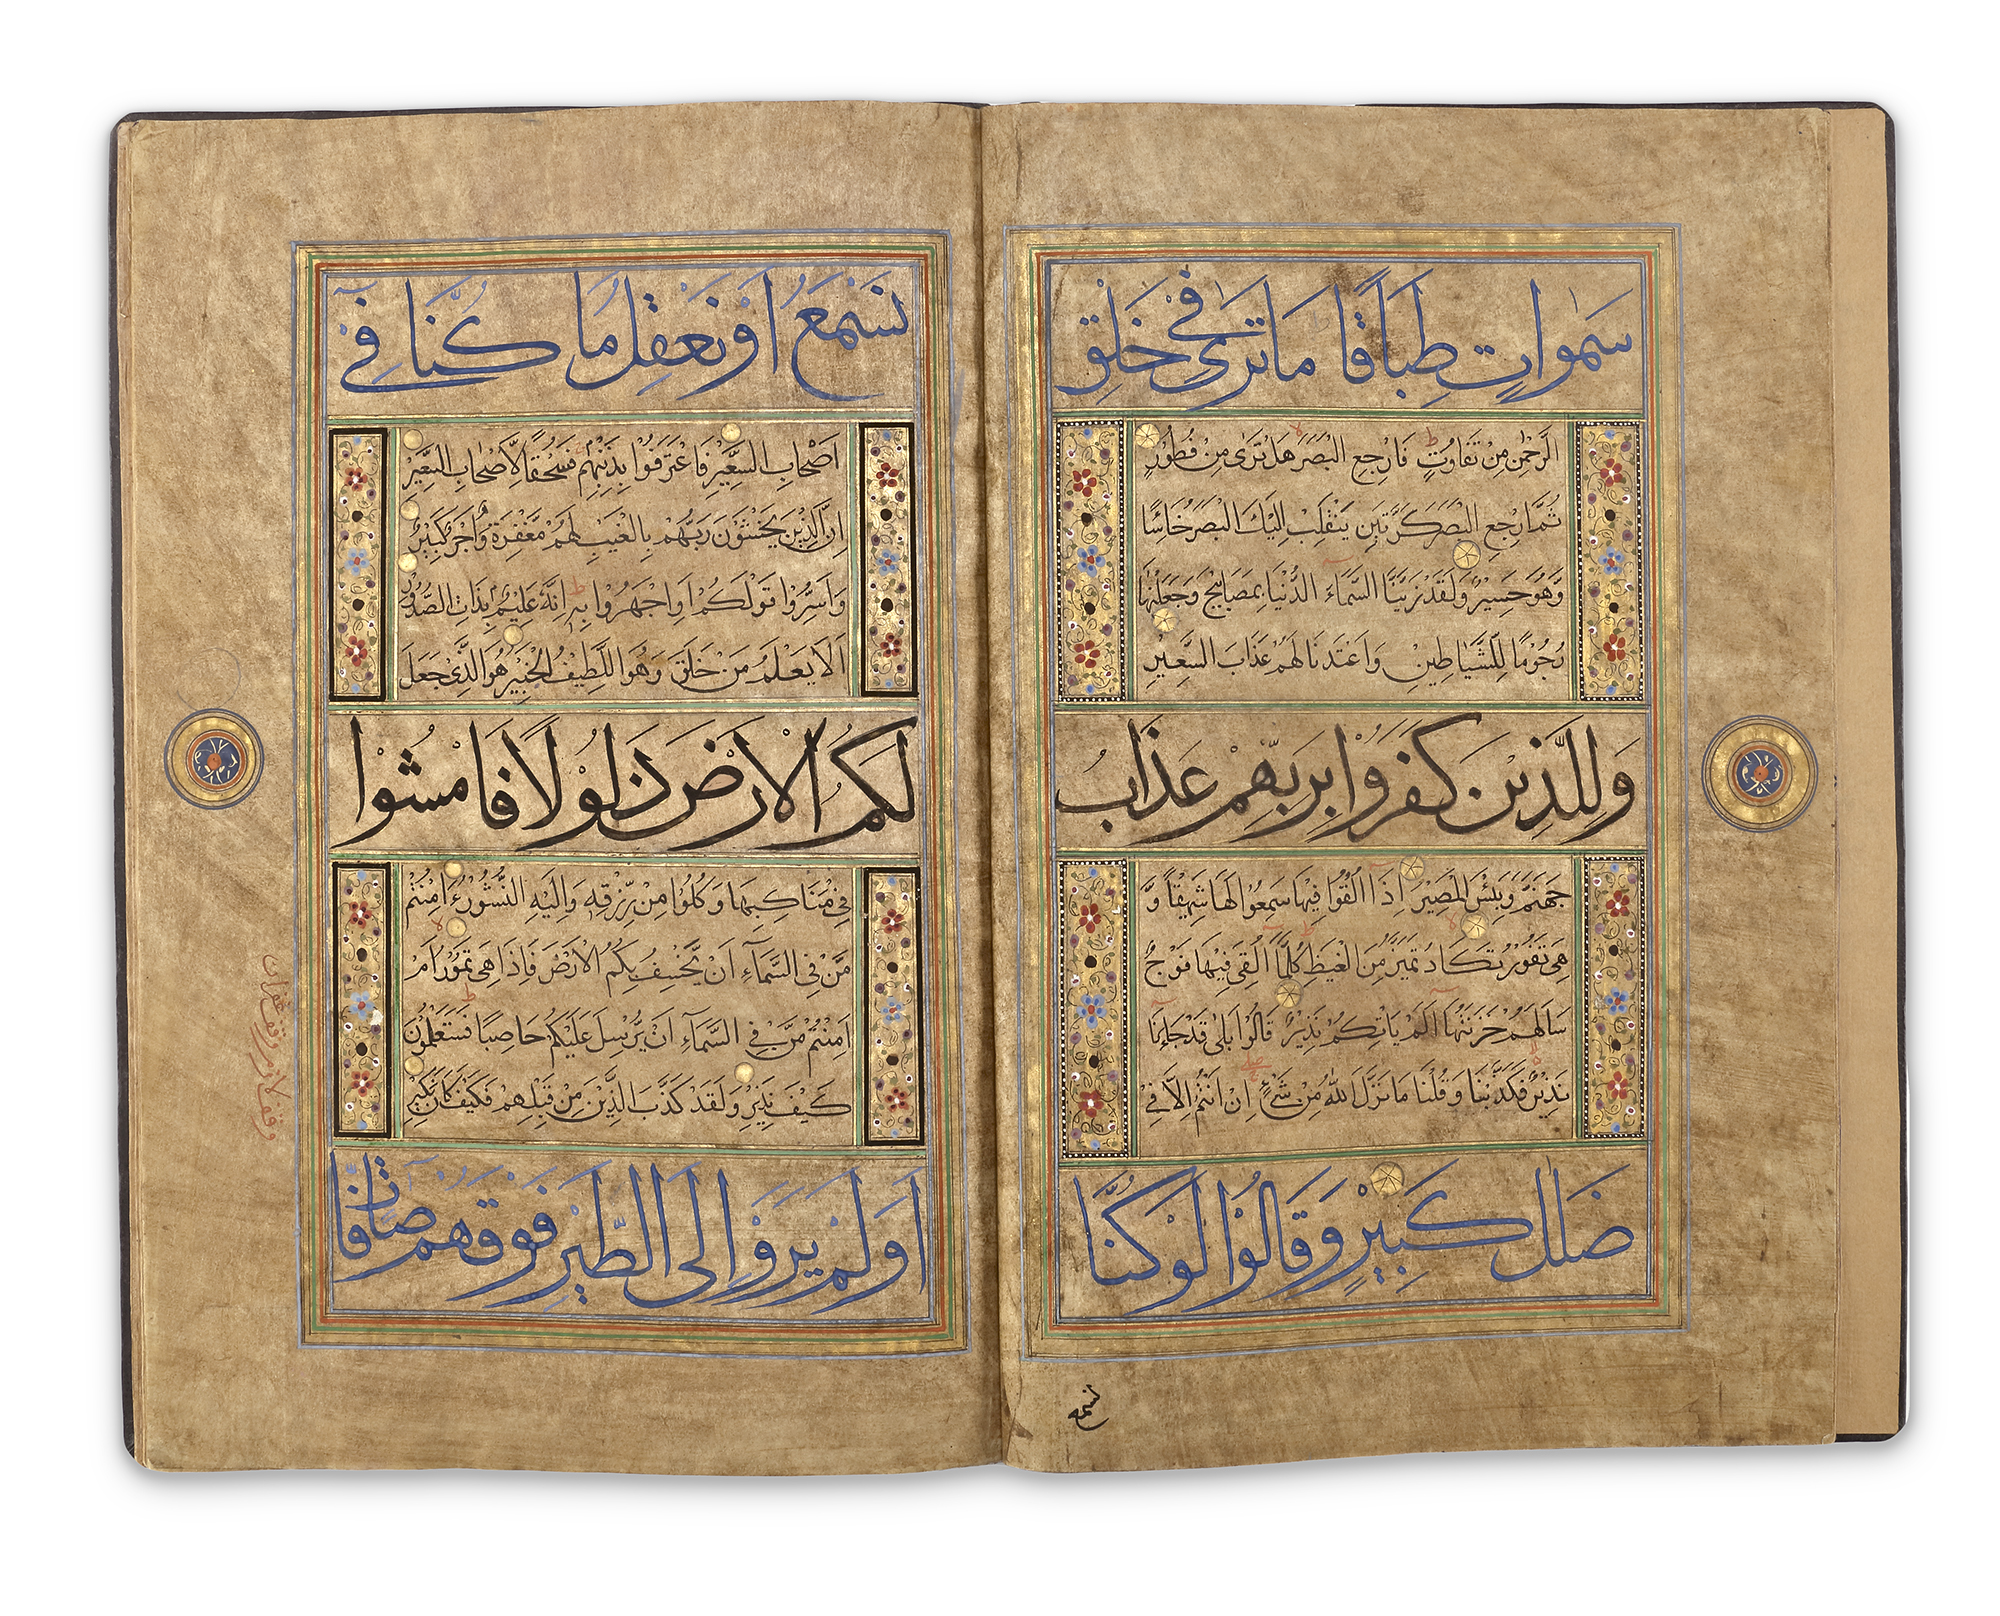 سَمٰوَاتٍ طِبَاقًا مَا تَرَىٰ فِي خَلْقِ
الرَّحْمٰنِ مِنْ تَفَاوُتٍ ط فَارْجِعِ الْبَصَرَ لا هَلْ تَرَىٰ مِنْ فُطُوْرٍ
ثُمَّ ارْجِعِ الْبَصَرَ كَرَّتَيْنِ يَنْقَلِبْ اِلَيْكَ الْبَصَرُ خَاسِئًا
وَهُوَ حَسِيْرٌ وَلَقَدْ زَيَّنَّا السَّمَآءَ الدُّنْيَا بِمَصَابِيْحَ وَجَعَلْنٰهَا
رُجُوْمًا لِلشَّيَاطِيْنِ وَاَعْتَدْنَا لَهُمْ عَذَابَ السَّعِيْرِ
وَلِلَّذِيْنَ كَفَرُوْا بِرَبِّهِمْ عَذَابُ
جَهَنَّمَ وَبِئْسَ الْمَصِيْرُ اِذَآ اُلْقُوْا فِيْهَا سَمِعُوْا لَهَا شَهِيْقًا وَّ
هِيَ تَفُوْرُ تَكَادُ تَمَيَّزُ مِنَ الْغَيْظِ ط كُلَّمَآ اُلْقِيَ فِيْهَا فَوْجٌ
سَاَلَهُمْ خَزَنَتُهَآ اَلَمْ يَاْتِكُمْ نَذِيْرٌ قَالُوْا بَلٰى قَدْ جَآءَنَا
نَذِيْرٌ فَكَذَّبْنَا وَقُلْنَا مَا نَزَّلَ اللهُ مِنْ شَيْءٍ اِنْ اَنْتُمْ اِلَّا فِيْ
ضَلٰلٍ كَبِيْرٍ وَقَالُوْا لَوْ كُنَّا
نسمع
نَسْمَعُ اَوْ نَعْقِلُ مَا كُنَّا فِيْٓ
اَصْحَابِ السَّعِيْرِ فَاعْتَرَفُوْا بِذَنْبِهِمْ فَسُحْقًا لِّاَصْحَابِ السَّعِيْرِ
اِنَّ الَّذِيْنَ يَخْشَوْنَ رَبَّهُمْ بِالْغَيْبِ لَهُمْ مَّغْفِرَةٌ وَّاَجْرٌ كَبِيْرٌ
وَاَسِرُّوْا قَوْلَكُمْ اَوِ اجْهَرُوْا بِهٖ ط اِنَّهٗ عَلِيْمٌ بِذَاتِ الصُّدُوْرِ
اَلَا يَعْلَمُ مَنْ خَلَقَ وَهُوَ اللَّطِيْفُ الْخَبِيْرُ هُوَ الَّذِيْ جَعَلَ
لَكُمُ الْاَرْضَ ذَلُوْلًا فَامْشُوْا
فِيْ مَنَاكِبِهَا وَكُلُوْا مِنْ رِّزْقِهٖ وَاِلَيْهِ النُّشُوْرُ ءَاَمِنْتُمْ
مَّنْ فِي السَّمَآءِ اَنْ يَّخْسِفَ بِكُمُ الْاَرْضَ فَاِذَا هِيَ تَمُوْرُ اَمْ
اَمِنْتُمْ مَّنْ فِي السَّمَآءِ اَنْ يُّرْسِلَ عَلَيْكُمْ حَاصِبًا ط فَسَتَعْلَمُوْنَ
كَيْفَ نَذِيْرِ وَلَقَدْ كَذَّبَ الَّذِيْنَ مِنْ قَبْلِهِمْ فَكَيْفَ كَانَ نَكِيْرِ
اَوَلَمْ يَرَوْا اِلَى الطَّيْرِ فَوْقَهُمْ صَافَّاتٍ
وقف لازم وقف غفران